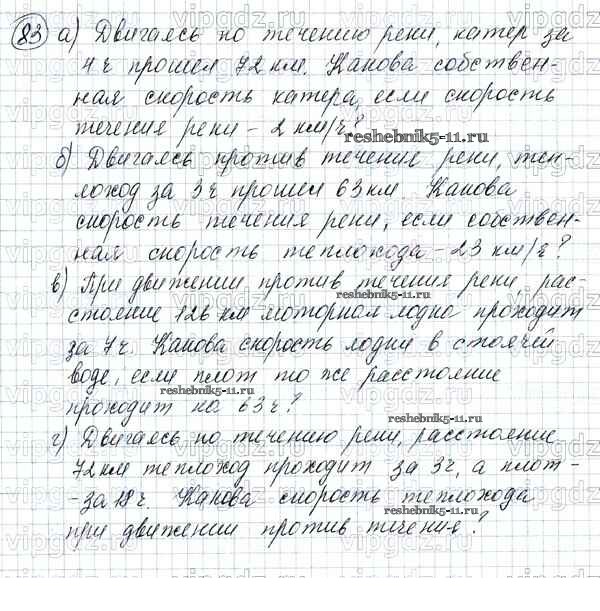 83 а) Двигаясь по течению реки, катер за
4 ч прошел 72 км. Какова собствен-
ная скорость катера, если скорость
течения реки - 2 км/ч?
reshebnik5-11.ru
б) Двигаясь против течения реки, теп-
лоход за 3ч прошел 63 км. Какова
скорость течения реки, если собствен-
ная скорость теплохода - 23 км/ч?
в) При движении против течения реки, рас-
reshebnik5-11.ru
стояние 126 км моторная лодка проходит
за 7 ч. Какова скорость лодки в стоячей
воде, если плот то же расстояние
проходит на 63 ч?
reshebnik5-11.ru
г) Двигаясь по течению реки, расстояние
72 км теплоход проходит за 3ч, а плот-
- за 18 ч. Какова скорость теплохода
reshebnik5-11.ru
при движении против течения?
vipgdz.ru